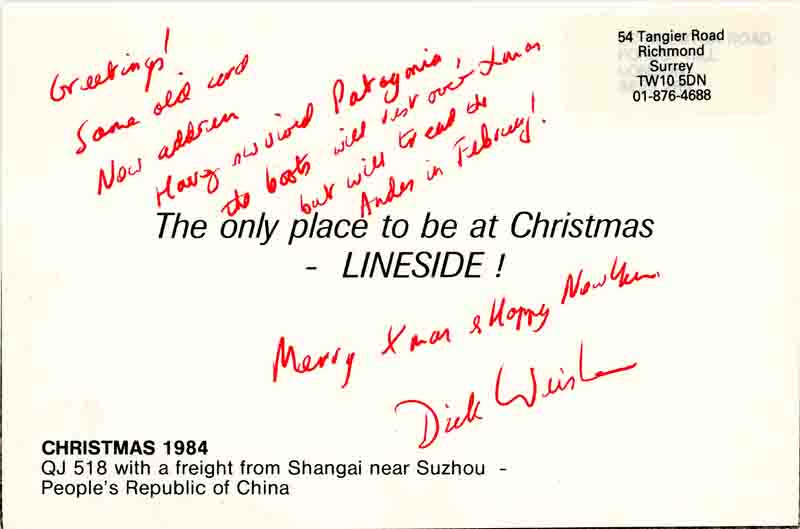 Greetings!
Same old card
New address
Having survived Patagonia,
the boots will rest over Xmas
but will tread the
Andes in February!
54 Tangier Road
Richmond
Surrey
TW10 5DN
01-876-4688
The only place to be at Christmas
- LINESIDE !
Merry Xmas & Happy New Year.
Dick
CHRISTMAS 1984
QJ 518 with a freight from Shangai near Suzhou -
People's Republic of China